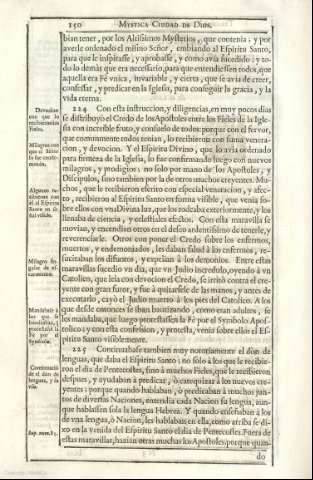 250 MYSTICA CIUDAD DE DIOS.
bian tener, por los Altissimos Mysterios, que contenia; y por
averle ordenado el mismo Señor, embiando al Espiritu Santo,
para que le inspirasse, y aprobasse, y como avia sucedido; y to-
do lo demàs que era necessario, para que entendiessen todos, que
aquella era Fè vnica, invariable, y cierta, que se avia de creer,
confessar, y predicar en la Iglesia, para conseguir la gracia, y la
vida eterna.
224 Con esta instruccion, y diligencias, en muy pocos dias
se distribuyò el Credo de los Apostoles entre los Fieles de la Igle-
sia con increible fruto, y consuelo de todos: porque con el fervor,
que comunmente todos tenian, lo recibieron con suma venera-
cion, y devocion. Y el Espiritu Divino, que lo avia ordenado
para firmeza de la Iglesia, lo fue confirmando luego con nuevos
milagros, y prodigios; no solo por mano de los Apostoles, y
Discipulos, sino tambien por la de otros muchos creyentes. Mu-
chos, que le recibieron escrito con especial veneracion, y afec-
to, recibieron al Espiritu Santo en forma visible, que venia so-
bre ellos con vna Divina luz, que los rodeaba exteriormente, y los
llenaba de ciencia, y celestiales efectos. Con esta maravilla se
movian, y encendian otros en el deseo ardentissimo de tenerle, y
reverenciarle. Otros con poner el Credo sobre los enfermos,
muertos, y endemoniados, les daban salud à los enfermos, re-
sucitaban los difuntos, y expelian à los demonios. Entre estas
maravillas sucediò vn dia, que vn Judio incredulo, oyendo à vn
Catolico, que leìa con devocion el Credo, se irritò contra el cre-
yente con gran furor, y fue à quitarsele de las manos, y antes de
executarlo, cayò el Judio muerto à los pies del Catolico. A los
que desde entonces se iban bautizando, como eran adultos, se
les mandaba, que luego protestassen la Fè por el Symbolo Apos-
tolico; y con esta confession, y protesta, venia sobre ellos el Es-
piritu Santo visiblemente.
225 Continuabase tambien muy notoriamente el dòn de
lenguas, que daba el Espiritu Santo; no solo à los que le recibie-
ron el dia de Pentecostes, sino à muchos Fieles, que le recibieron
despues, y ayudaban à predicar, ò catequizar à los nuevos cre-
yentes: porque quando hablaban, ò predicaban à muchos jun-
tos de diversas Naciones, entendia cada Nacion su lengua, aun-
que hablassen sola la lengua Hebrea. Y quando enseñaban à los
de vna lengua, ò Nacion, les hablaban en ella, como arriba se di-
xo en la venida del Espiritu Santo el dia de Pentecostes. Fuera de
estas maravillas, hazian otras muchas los Apostoles; porque quan-
do
Milagros con
que el
Milagro
Continuacion
de el dòn de
lenguas, y